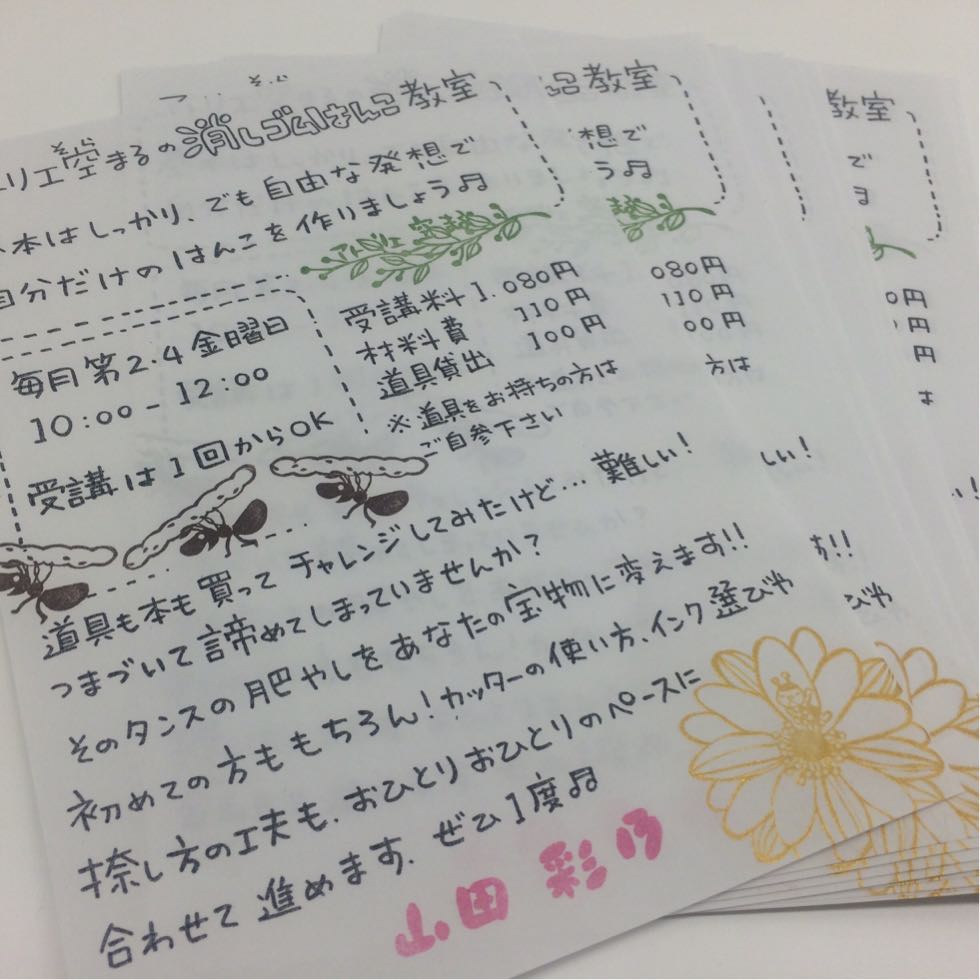 リエ空まるの消しゴムはんこ教室
そら
本はしっかり、でも自由な発想で
自分だけのはんこを作りましょう♫
アトリエ 空まる
毎月第2.4金曜日
10:00-12:00
受講は1回からOK
受講料 1.080円
材料費 110円
道具貸出 100円
※道具をお持ちの方は
ご自参下さい
道具も本も買ってチャレンジしてみたけど…難しい!
つまづいて諦めてしまっていませんか?
そのタンスの肥やしをあなたの宝物に変えます!!
初めての方ももちろん!カッターの使い方、インク選びや
捺し方の工夫も、おひとりおひとりのペースに
合わせて進めます、ぜひ1度♫
田 彩乃
そら
ご教室
想で
う♫
080円
110円
00円
方は
しい!
す!!
びや
教室
で
ま
0円
円
円
は
!